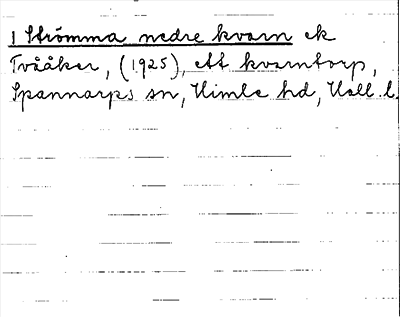 1 Strömma nedre kvarn ek
Tvååker, (1925), ett kvarntorp,
Spannarps sn, Himle hd, Hall. l.